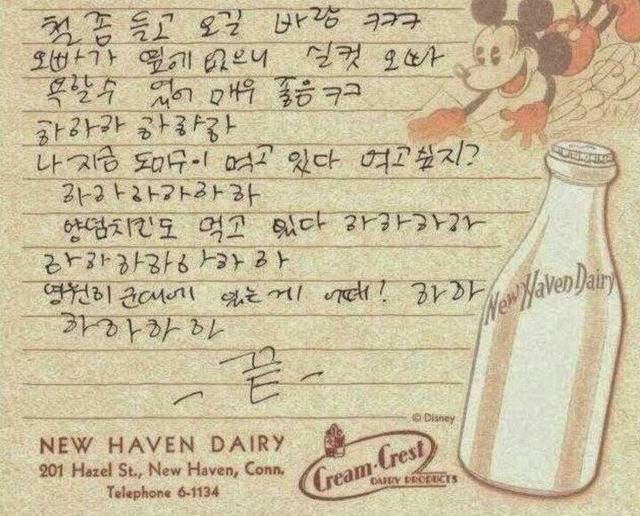 철 좀 들고 오길 바람 ㅋㅋㅋ
오빠가 옆에 없으니 실컷 오빠
욕할 수 있어 매우 좋음 ㅋㅋ
하하하 하하하
나 지금 도미구이 먹고 있다 먹고싶지?
하하하하하하
양념치킨도 먹고 있다 하하하하
하하하하하하하
영원히 군대에 있는 게 어때! 하하
하하하하
- 끝 -
© Disney
NEW HAVEN DAIRY
201 Hazel St., New Haven, Conn.
Telephone 6-1134
Cream-Crest
DAIRY PRODUCTS
New Haven Dairy